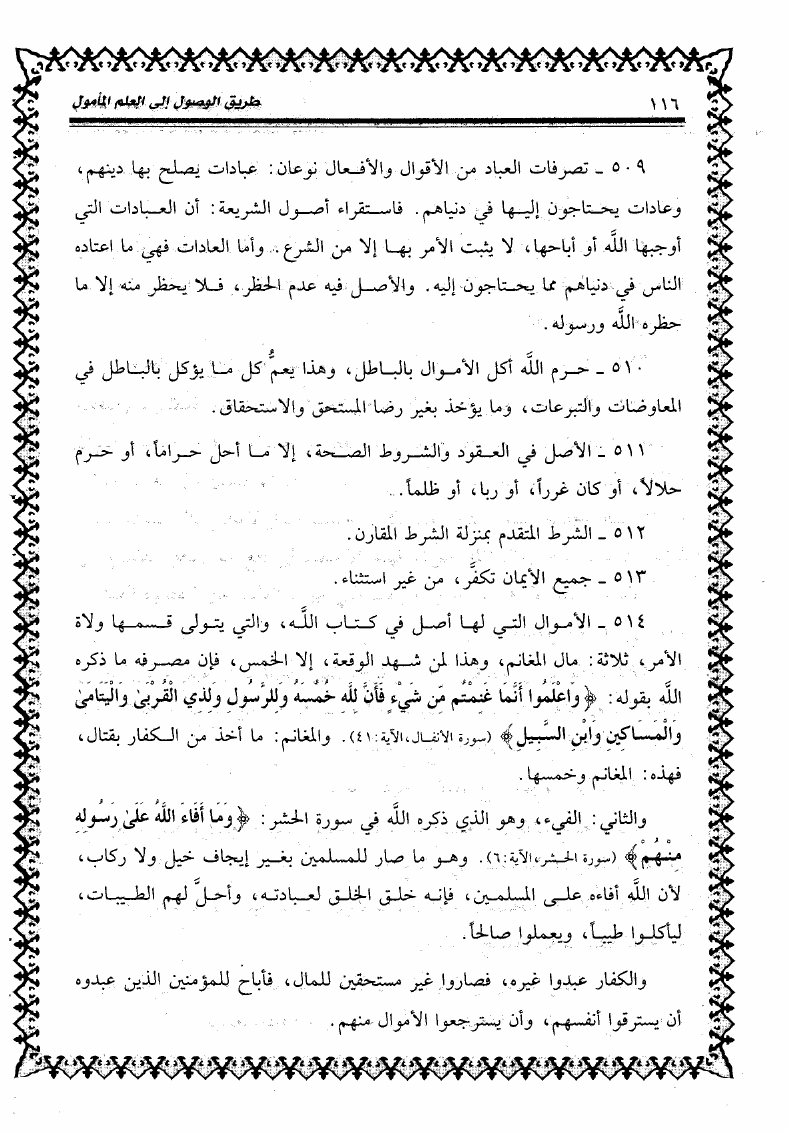 ١١٦
طريق الوصول إلى العلم المأمول
٥٠٩ ـ تصرفات العباد من الأقوال والأفعال نوعان: عبادات يصلح بها دينهم،
وعادات يحتاجون إليها في دنياهم. فاستقراء أصول الشريعة: أن العبادات التي
أوجبها اللَّه أو أباحها، لا يثبت الأمر بها إلا من الشرع. وأما العادات فهي ما اعتاده
الناس في دنياهم مما يحتاجون إليه. والأصل فيه عدم الحظر، فلا يحظر منه إلا ما
حظره اللَّه ورسوله.
٥١٠ ـ حرم اللَّه أكل الأموال بالباطل، وهذا يعمُّ كل ما يؤكل بالباطل في
المعاوضات والتبرعات، وما يؤخذ بغير رضا المستحق والاستحقاق.
٥١١ ـ الأصل في العقود والشروط الصحة، إلا ما أحل حراماً، أو حرم
حلالاً، أو كان غرراً، أو ربا، أو ظلماً.
٥١٢ ـ الشرط المتقدم بمنزلة الشرط المقارن.
٥١٣ ـ جميع الأيمان تكفَّر، من غير استثناء.
٥١٤ ـ الأموال التي لها أصل في كتاب اللَّه، والتي يتولى قسمها ولاة
الأمر، ثلاثة: مال المغانم، وهذا لمن شهد الوقعة، إلا الخمس، فإن مصرفه ما ذكره
اللَّه بقوله: ﴿وَاعْلَمُوا أَنَّمَا غَنِمْتُم مِّن شَيْءٍ فَأَنَّ لِلَّهِ خُمُسَهُ وَلِلرَّسُولِ وَلِذِي الْقُرْبَىٰ وَالْيَتَامَىٰ
وَالْمَسَاكِينِ وَابْنِ السَّبِيلِ﴾ (سورة الأنفال،الآية:٤١). والمغانم: ما أخذ من الكفار بقتال،
فهذه: المغانم وخمسها.
والثاني: الفيء، وهو الذي ذكره اللَّه في سورة الحشر: ﴿وَمَا أَفَاءَ اللَّهُ عَلَىٰ رَسُولِهِ
مِنْهُمْ﴾ (سورة الحشر،الآية:٦). وهو ما صار للمسلمين بغير إيجاف خيل ولا ركاب،
لأن اللَّه أفاءه على المسلمين، فإنه خلق الخلق لعبادته، وأحلَّ لهم الطيبات،
ليأكلوا طيباً، ويعملوا صالحاً.
والكفار عبدوا غيره، فصاروا غير مستحقين للمال، فأباح للمؤمنين الذين عبدوه
أن يسترقوا أنفسهم، وأن يسترجعوا الأموال منهم.